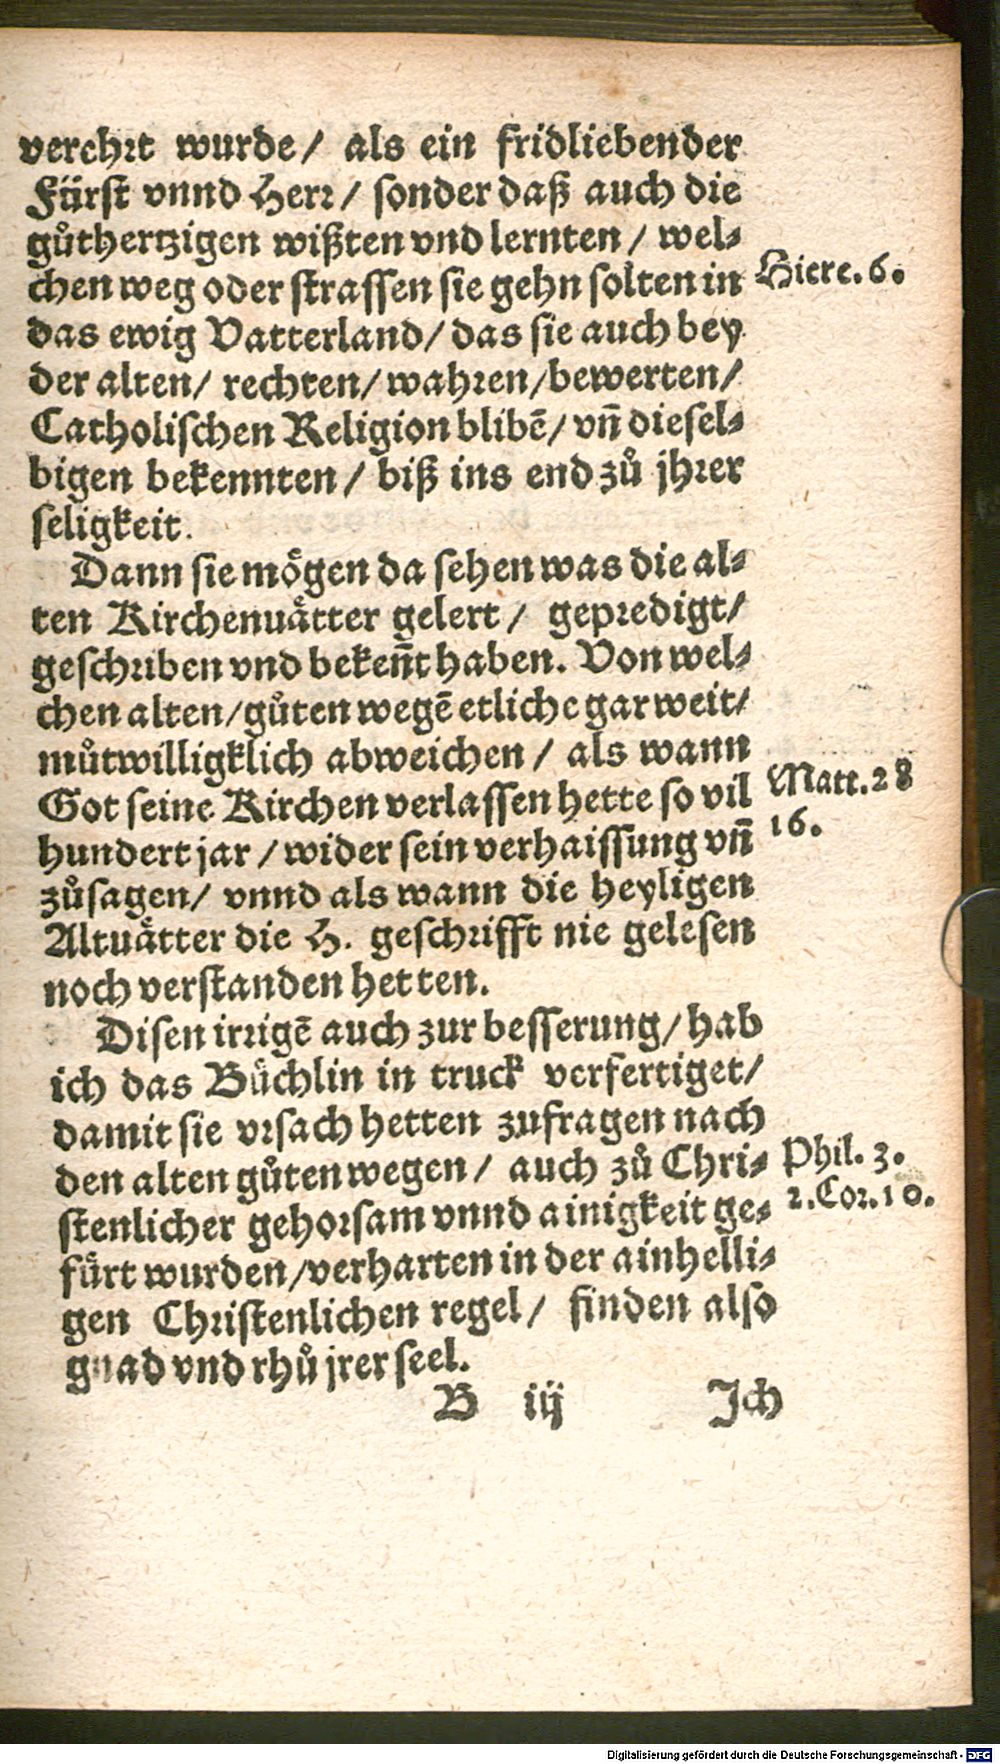 verehrt wurde/ als ein fridliebender
Fürst vnnd Herr/ sonder daß auch die
gůthertzigen wißten vnd lernten/ wel-
chen weg oder strassen sie gehn solten in
Hiere. 6.
das ewig Vatterland/ das sie auch bey
der alten/ rechten/ wahren/ bewerten/
Catholischen Religion blibē/ vñ diesel-
bigen bekennten/ biß ins end zů jhrer
seligkeit.
Dann sie mögen da sehen was die al-
ten Kirchenuätter gelert/ gepredigt/
geschriben vnd bekeñt haben. Von wel-
chen alten/ gůten wegē etliche gar weit/
můtwilligklich abweichen/ als wann
Got seine Kirchen verlassen hette so vil
Matt. 28
hundert jar/ wider sein verhaissung vñ
16.
zůsagen/ vnnd als wann die heyligen
Altuätter die H. geschrifft nie gelesen
noch verstanden hetten.
Disen irrigē auch zur besserung/ hab
ich das Büchlin in truck verfertiget/
damit sie vrsach hetten zufragen nach
den alten gůten wegen/ auch zů Chri-
Phil. 3.
stenlicher gehorsam vnnd ainigkeit ge-
2. Cor. 10.
fürt wurden/ verharten in der ainhelli-
gen Christenlichen regel/ finden also
gnad vnd rhů jrer seel.
B iij Ich
Digitalisierung gefördert durch die Deutsche Forschungsgemeinschaft - DFG